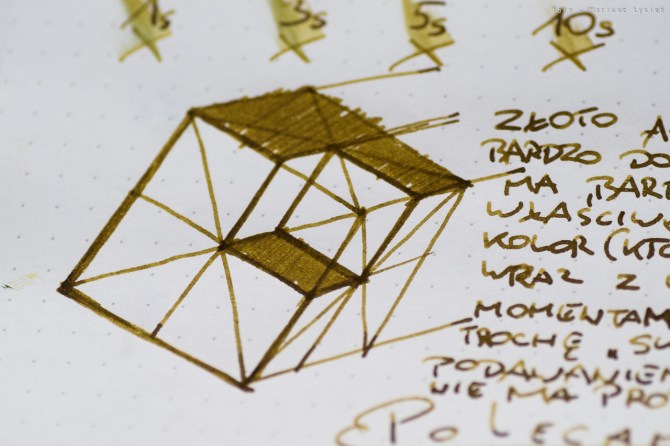 1s 3s 5s 10s
ZŁOTO A
BARDZO DO
MA BARD
WŁAŚCIW
KOLOR (KTÓ
WRAZ Z
MOMENTAM
TROCHĘ „SU
PODAWANIEM
NIE MA PRO
POLECAM